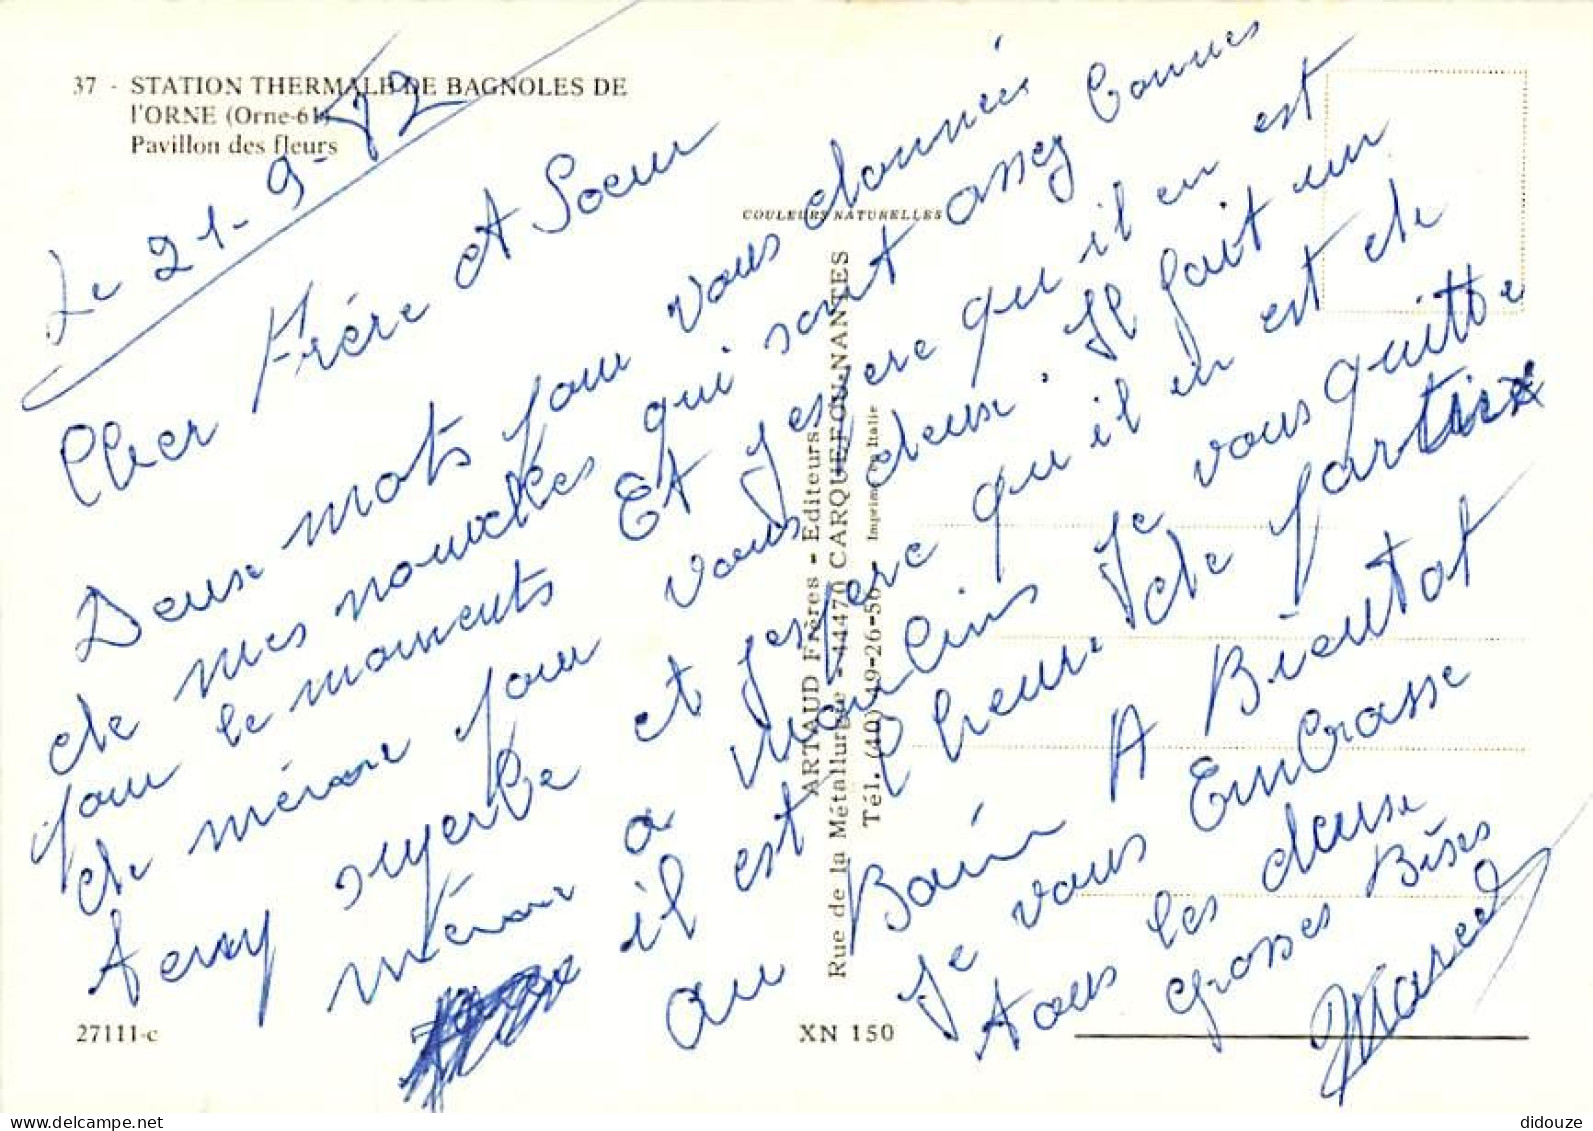 37 - STATION THERMALE DE BAGNOLES DE
l'ORNE (Orne-61)
Pavillon des fleurs
Le 21-9-82
Cher Frére et Soeur
Deux mots pour vous données
de mes nouvelles qui sont assez bonnes
pour le moments Et Jespere qu'il en est
de méme pour vous deux. Il fait un
temp superbe et jespere qu'il en est de
méme a Moulins Je vous quitte
il est l'heure de partir
au Bain A Bientot
Je vous Embrasse
tous les deux
grosses Bises
Marcel
COULEURS NATURELLES
ARTAUD Frères - Editeurs
Rue de la Métallurgie - 44470 CARQUEFOU-NANTES
Tél. (40) 49-26-50 - Imprimé en Italie
27111-c
XN 150
delcampe.net
didouze